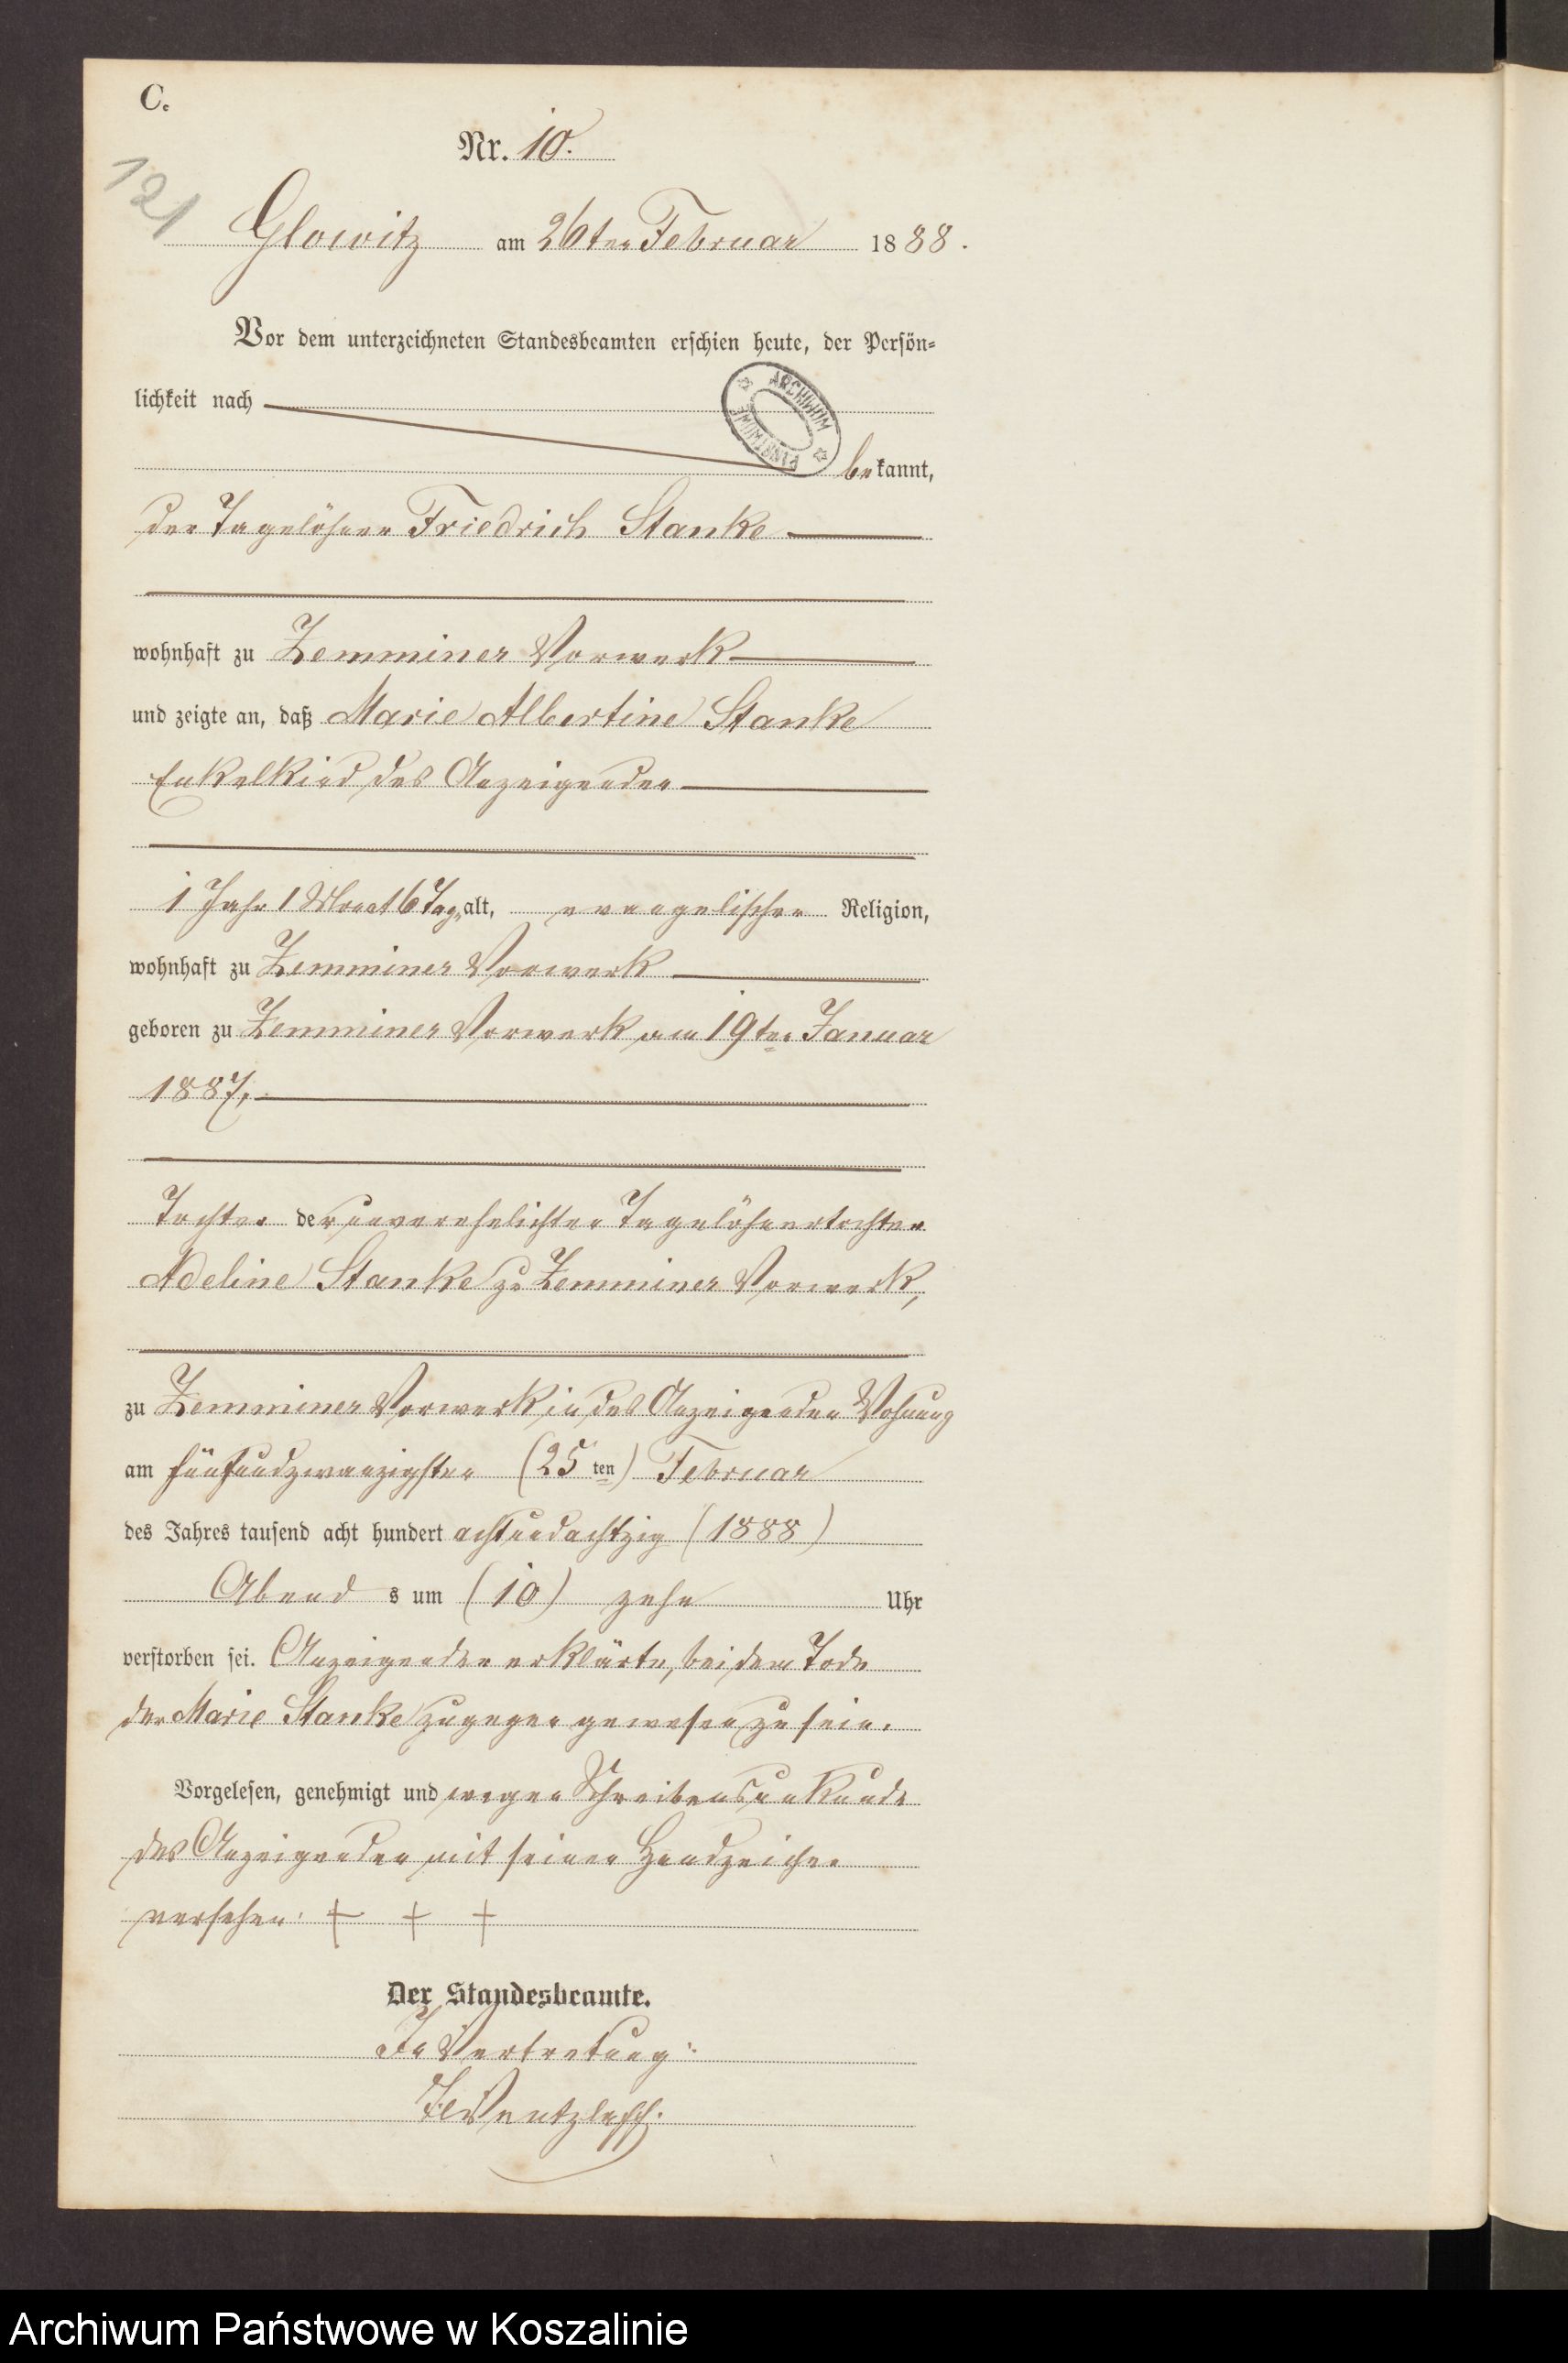 C.
Nr. 10.
121
Glowitz am 26ten Februar 1888.
Vor dem unterzeichneten Standesbeamten erschien heute, der Persön-
lichkeit nach
ARCHIWUM PAŃSTWOWE
bekannt,
der Tagelöhner Friedrich Stanke
wohnhaft zu Zemminer Vorwerk
und zeigte an, daß Marie Albertine Stanke
Enkelkind des Anzeigenden
1 Jahr 1 Monat 6 Tag alt, evangelischer Religion,
wohnhaft zu Zemminer Vorwerk
geboren zu Zemminer Vorwerk am 19ten Januar
1887,
Tochter der unverehelichten Tagelöhnertochter
Adeline Stanke zu Zemminer Vorwerk,
zu Zemminer Vorwerk in des Anzeigenden Wohnung
am fünfundzwanzigsten (25ten) Februar
des Jahres tausend acht hundert achtundachtzig (1888)
Abends um (10) zehn Uhr
verstorben sei. Anzeigender erklärte, bei dem Tode
der Marie Stanke zugegen gewesen zu sein.
Vorgelesen, genehmigt und wegen Schreibensunkunde
des Anzeigenden mit seinen Handzeichen
versehen: + + +
Der Standesbeamte.
In Vertretung:
Wentzlaff.
Archiwum Państwowe w Koszalinie